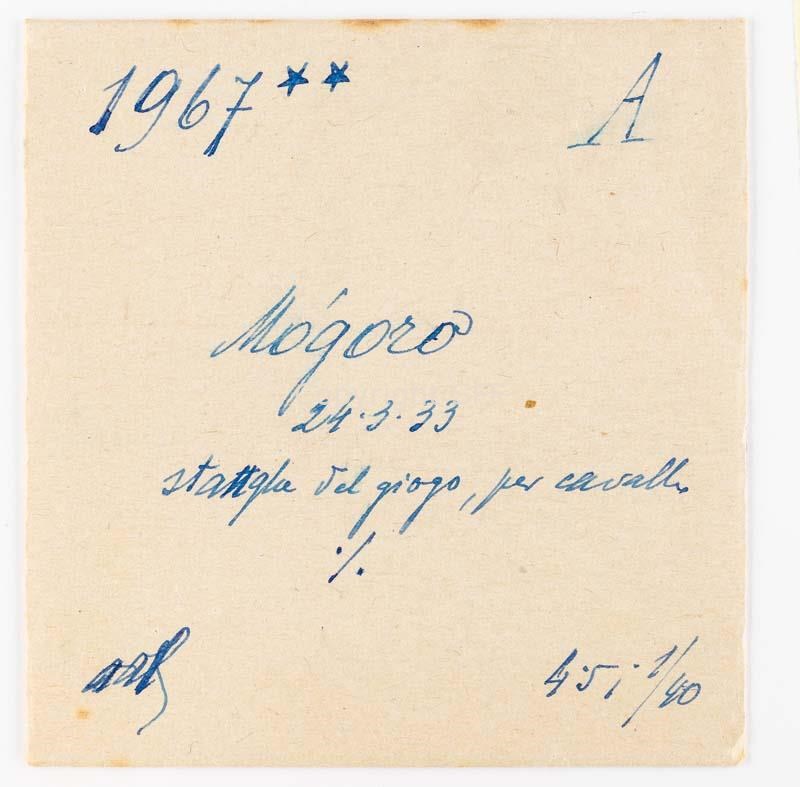 1967** A
Mógoro
24.3.33
del giogo, per cavalli
./.
4.5; 1/40